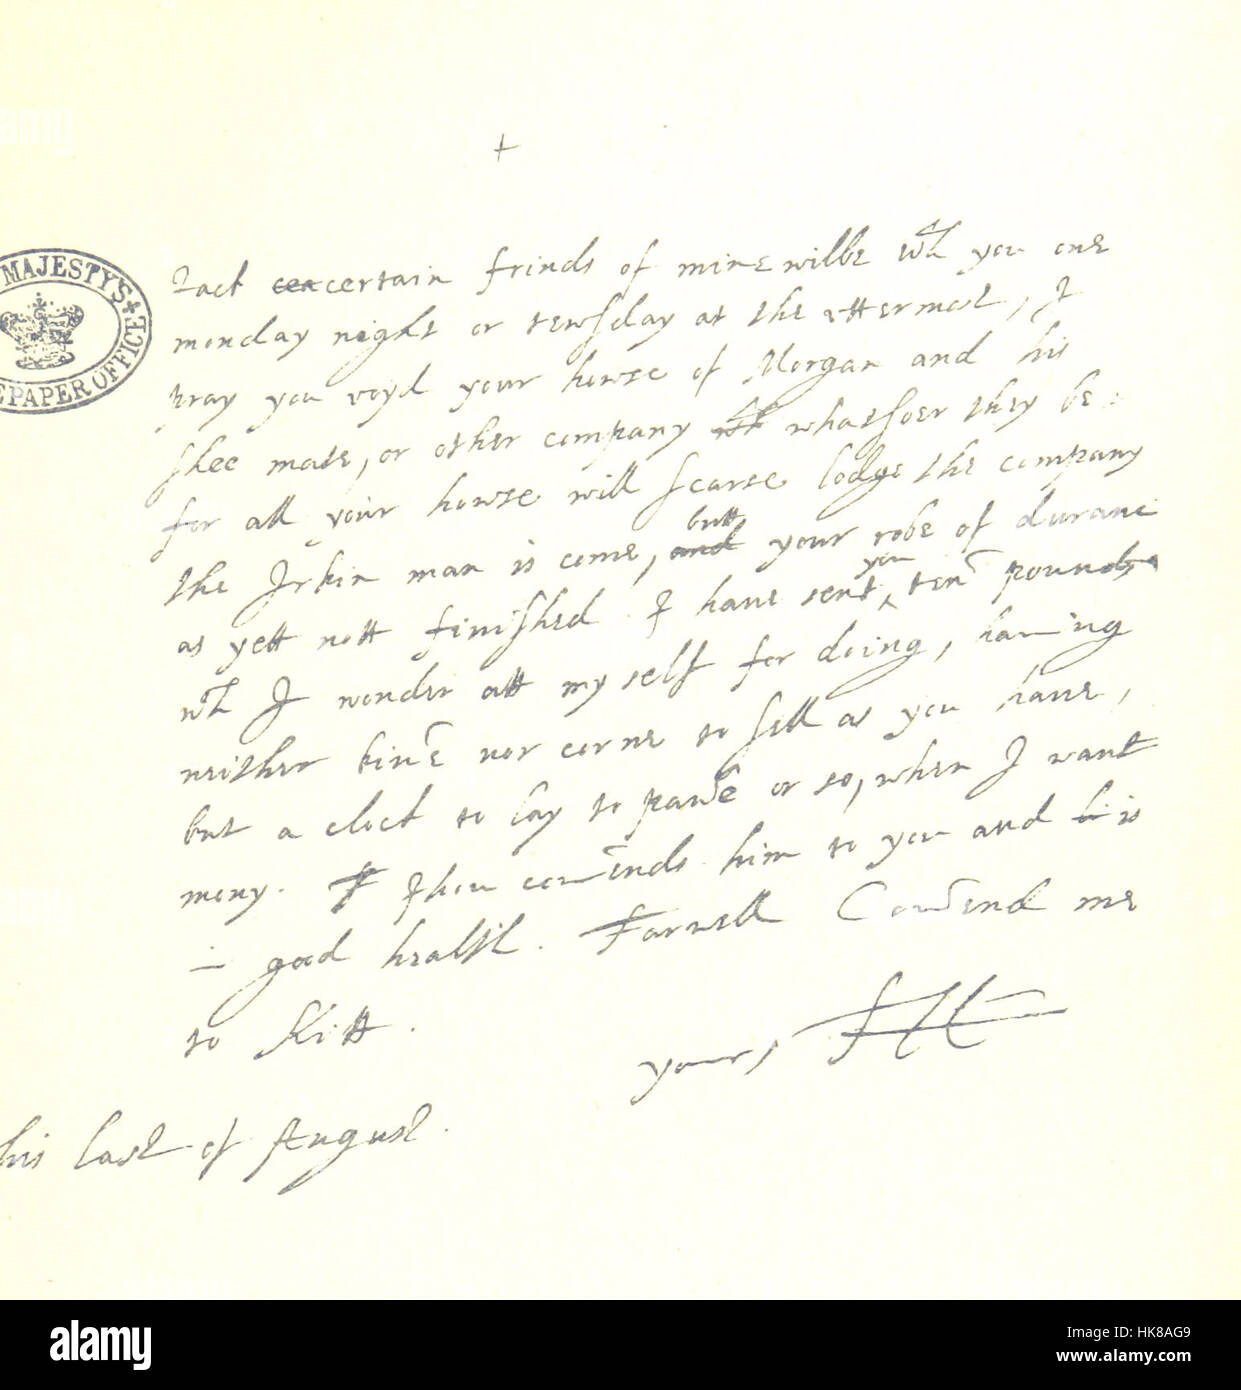 +
MAJESTY'S
PAPER OFFICE
Jack cea certain frinds of mine wilbe wth you one
monday night or tewsday at the uttermost, I
pray you voyd your howse of Morgan and his
shee mate, or other company wh whatsoer they be
for all your howse will scarse lodge the company
the Jrkin man is come, and butt your robe of durance
as yett nott finished. I have sent you ten pounds
wch I wonder att my self for doing, having
neither kine nor corne to sell as you have,
but a clock to lay to pawne or so, when I want
mony. I Thou comends him to you and hi is
in good health. Farwell Comend me
to Kitt.
yours,
his last of August.
alamy
Image ID: HK8AG9
www.alamy.com